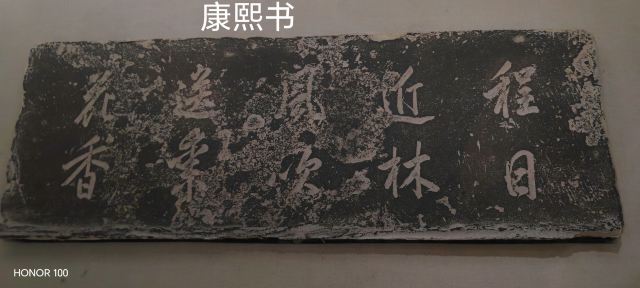 康熙书
程日
近林
風吹
送來
花香
HONOR 100